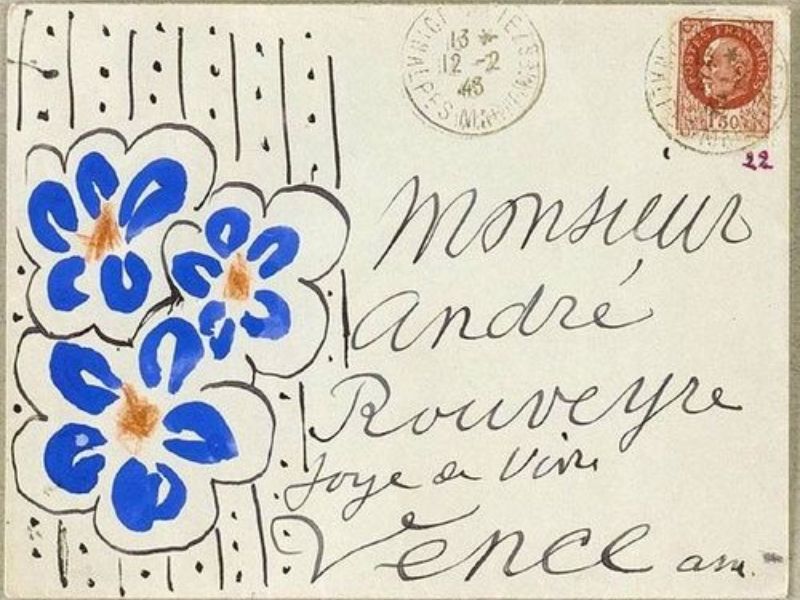 13 *
12 -2
43
POSTES FRANÇAISES
22
Monsieur
André
Rouveyre
Joye de Vivre
Vence am.